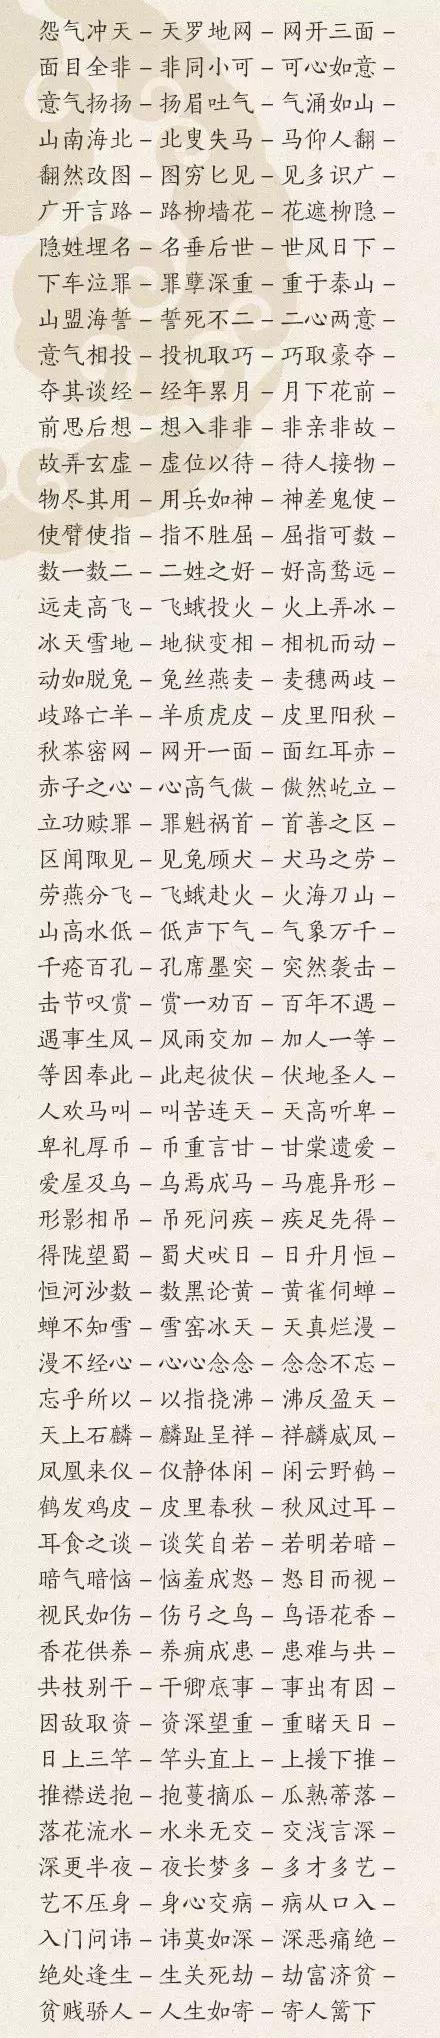 怨气冲天–天罗地网–网开三面–
面目全非–非同小可–可心如意–
意气扬扬–扬眉吐气–气涌如山–
山南海北–北叟失马–马仰人翻–
翻然改图–图穷匕见–见多识广–
广开言路–路柳墙花–花遮柳隐–
隐姓埋名–名垂后世–世风日下–
下车泣罪–罪孽深重–重于泰山–
山盟海誓–誓死不二–二心两意–
意气相投–投机取巧–巧取豪夺–
夺其谈经–经年累月–月下花前–
前思后想–想入非非–非亲非故–
故弄玄虚–虚位以待–待人接物–
物尽其用–用兵如神–神差鬼使–
使臂使指–指不胜屈–屈指可数–
数一数二–二姓之好–好高骛远–
远走高飞–飞蛾投火–火上弄冰–
冰天雪地–地狱变相–相机而动–
动如脱兔–兔丝燕麦–麦穗两歧–
歧路亡羊–羊质虎皮–皮里阳秋–
秋荼密网–网开一面–面红耳赤–
赤子之心–心高气傲–傲然屹立–
立功赎罪–罪魁祸首–首善之区–
区闻陬见–见兔顾犬–犬马之劳–
劳燕分飞–飞蛾赴火–火海刀山–
山高水低–低声下气–气象万千–
千疮百孔–孔席墨突–突然袭击–
击节叹赏–赏一劝百–百年不遇–
遇事生风–风雨交加–加人一等–
等因奉此–此起彼伏–伏地圣人–
人欢马叫–叫苦连天–天高听卑–
卑礼厚币–币重言甘–甘棠遗爱–
爱屋及乌–乌焉成马–马鹿异形–
形影相吊–吊死问疾–疾足先得–
得陇望蜀–蜀犬吠日–日升月恒–
恒河沙数–数黑论黄–黄雀伺蝉–
蝉不知雪–雪窑冰天–天真烂漫–
漫不经心–心心念念–念念不忘–
忘乎所以–以指挠沸–沸反盈天–
天上石麟–麟趾呈祥–祥麟威凤–
凤凰来仪–仪静体闲–闲云野鹤–
鹤发鸡皮–皮里春秋–秋风过耳–
耳食之谈–谈笑自若–若明若暗–
暗气暗恼–恼羞成怒–怒目而视–
视民如伤–伤弓之鸟–鸟语花香–
香花供养–养痈成患–患难与共–
共枝别干–干卿底事–事出有因–
因敌取资–资深望重–重睹天日–
日上三竿–竿头直上–上援下推–
推襟送抱–抱蔓摘瓜–瓜熟蒂落–
落花流水–水米无交–交浅言深–
深更半夜–夜长梦多–多才多艺–
艺不压身–身心交病–病从口入–
入门问讳–讳莫如深–深恶痛绝–
绝处逢生–生关死劫–劫富济贫–
贫贱骄人–人生如寄–寄人篱下